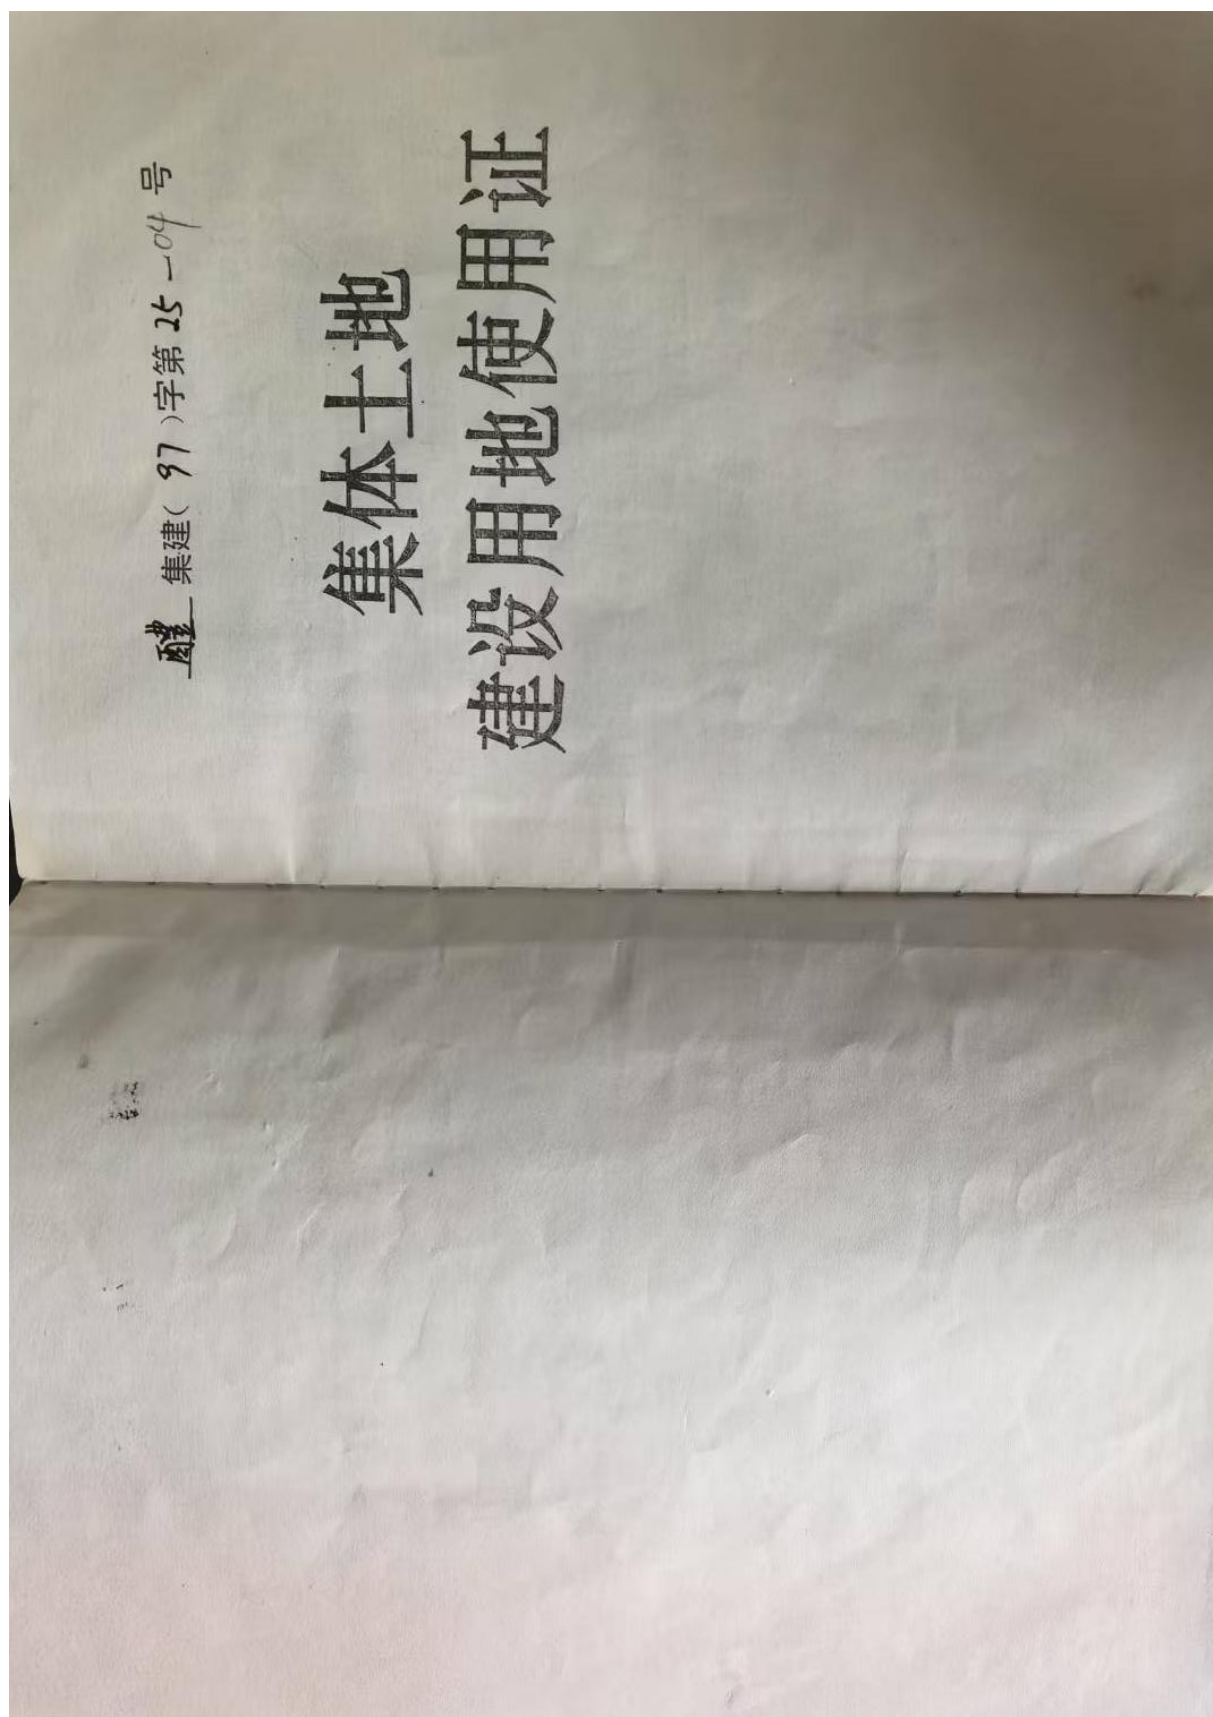 醴集建(97)字第25-04号
集体土地
建设用地使用证